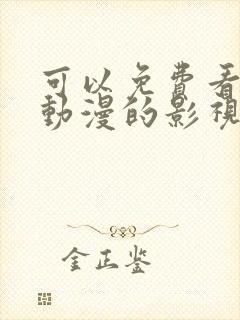 可以免費看
動漫的影視
金正鉴